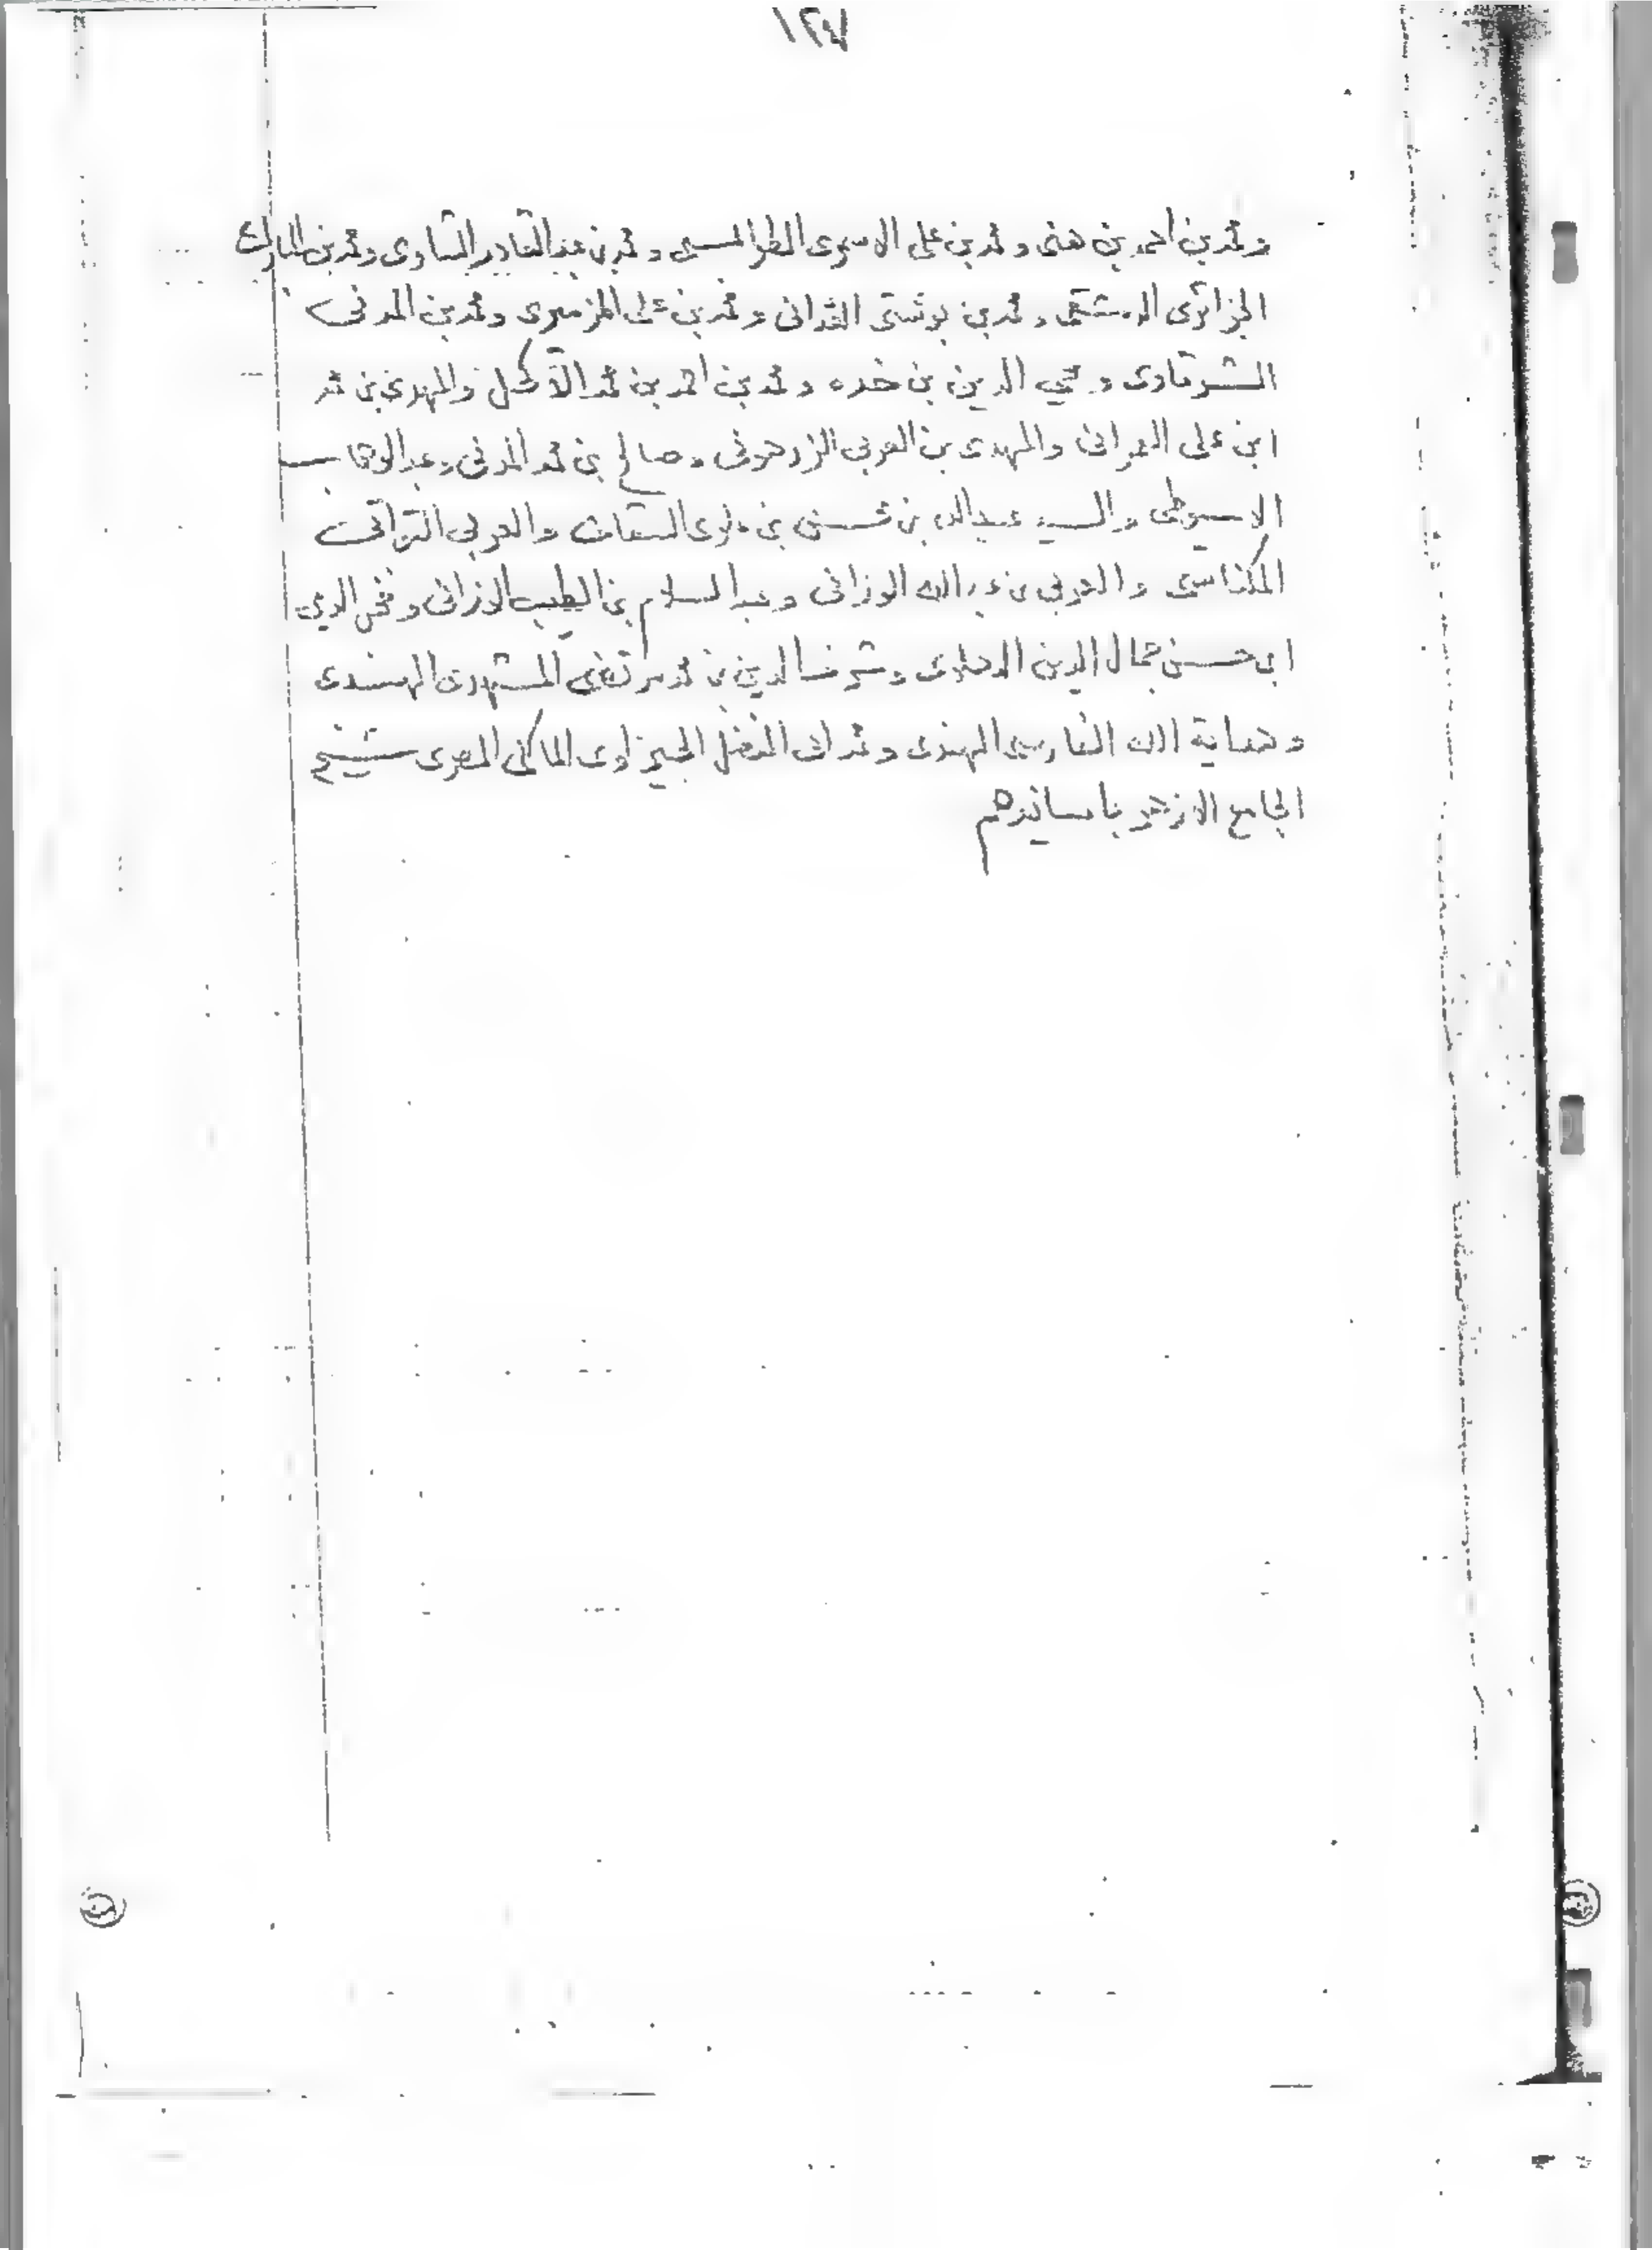 ١٢٧
ومحمد بن احمد بن هنى ومحمد بن على الاسمرى الطرابلسى ومحمد بن عبد القادر الشاوى ومحمد بن المبارك
الجزائرى الدمشقى ومحمد بن بوشتى الفدانى ومحمد بن على المزميرى ومحمد بن المدنى
الشرقاوى ومحي الدين بن خده ومحمد بن احمد بن محمد الأكحل والمهدى بن محمد
ابن على العمرانى والمهدى بن العربى الزرهونى وصالح بن محمد المدنى وعبد الوهاب
الاسيوطى والسيد عبد الله بن محسن بن علوى السقاف والعربى التراقى
المكناسى والعربى بن عبد الله الوزانى وعبد السلام بن الطيب الوزانى وفخر الدين
ابن حسن جمال الدين الدهلوى وشرف الدين بن محمد مرتضى المشهدى الهندى
وهداية الله الفارسى الهندى ومحمد ابى الفضل الجيزاوى المالكى المصرى شيخ
الجامع الازهر باسانيدهم